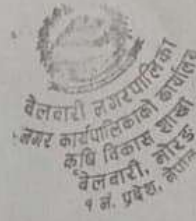 बेलवारी नगरपालिका
नगर कार्यपालिकाको कार्यालय
कृषि विकास शाखा
बेलवारी, मोरङ
१ नं. प्रदेश, नेपाल